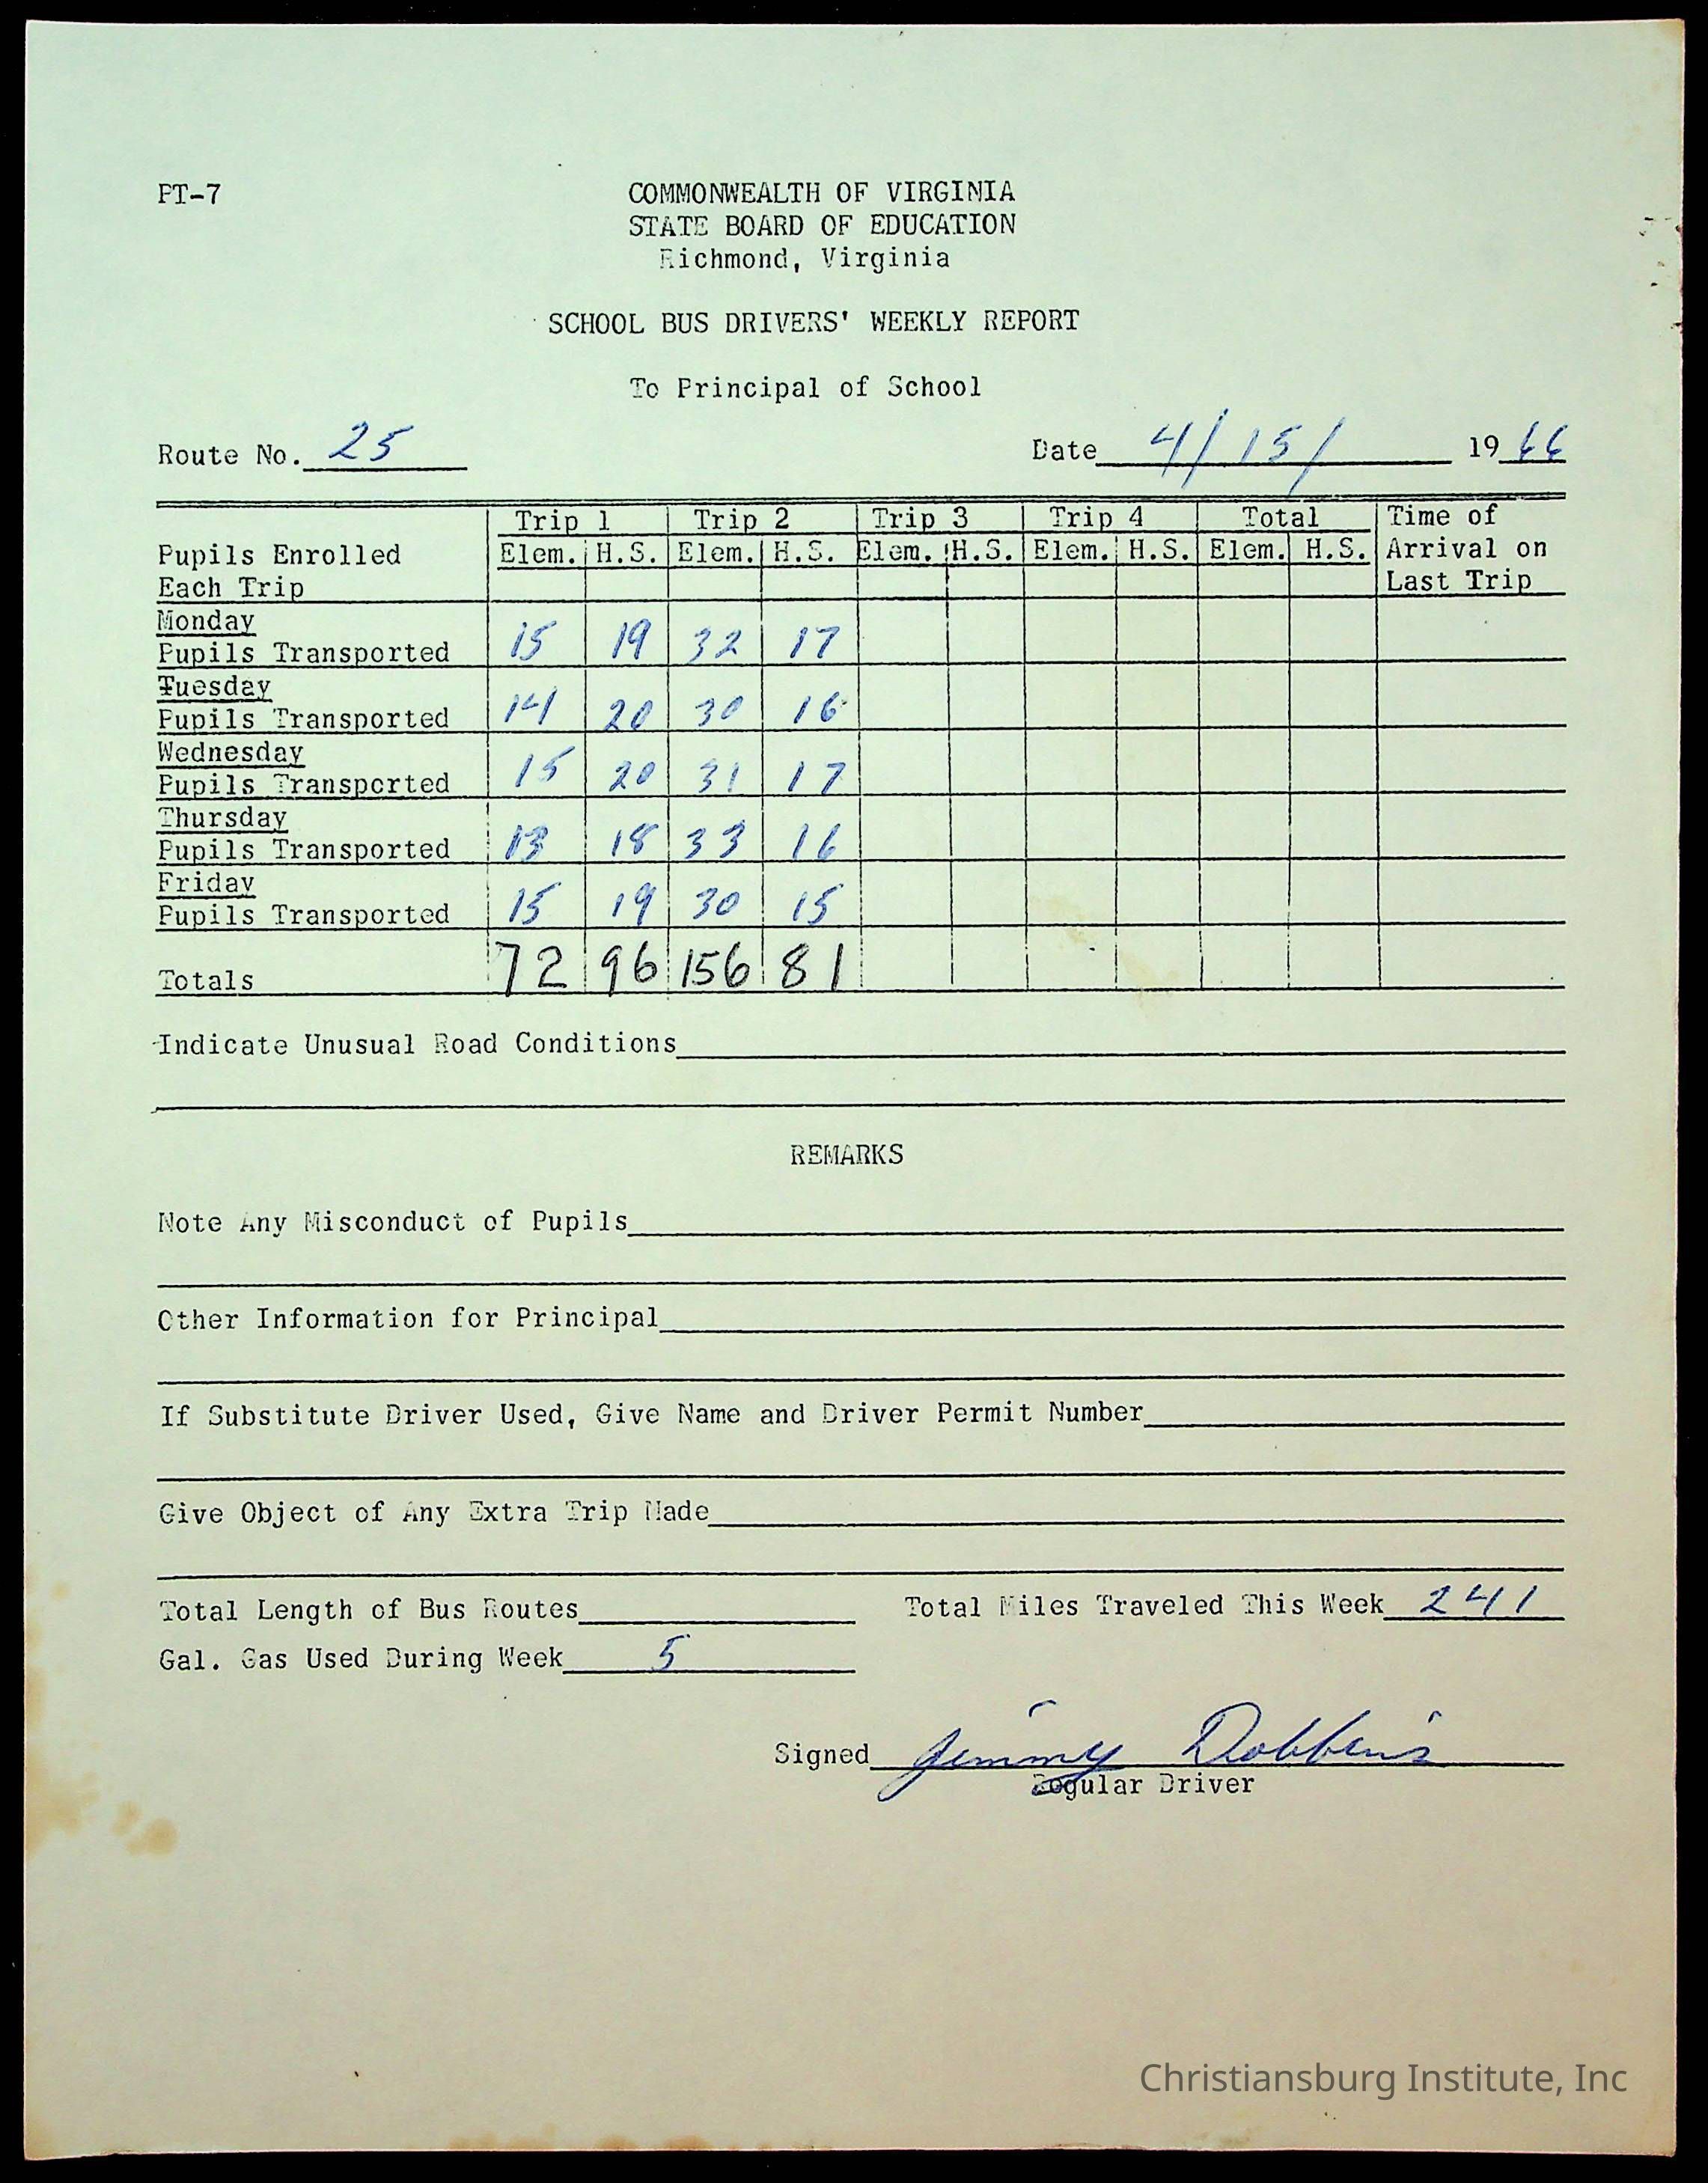 PT-7
COMMONWEALTH OF VIRGINIA
STATE BOARD OF EDUCATION
Richmond, Virginia
SCHOOL BUS DRIVERS' WEEKLY REPORT
To Principal of School
Route No. 25 Date 4/15/ 1966
Trip 1 Trip 2 Trip 3 Trip 4 Total Time of
Pupils Enrolled Elem. H.S. Elem. H.S. Elem. H.S. Elem. H.S. Elem. H.S. Arrival on
Each Trip Last Trip
Monday
Pupils Transported 15 19 32 17
Tuesday
Pupils Transported 14 20 30 16
Wednesday
Pupils Transported 15 20 31 17
Thursday
Pupils Transported 13 18 33 16
Friday
Pupils Transported 15 19 30 15
Totals 72 96 156 81
Indicate Unusual Road Conditions
REMARKS
Note Any Misconduct of Pupils
Other Information for Principal
If Substitute Driver Used, Give Name and Driver Permit Number
Give Object of Any Extra Trip Made
Total Length of Bus Routes Total Miles Traveled This Week 241
Gal. Gas Used During Week 5
Signed Jimmy Dobbins
Regular Driver
Christiansburg Institute, Inc